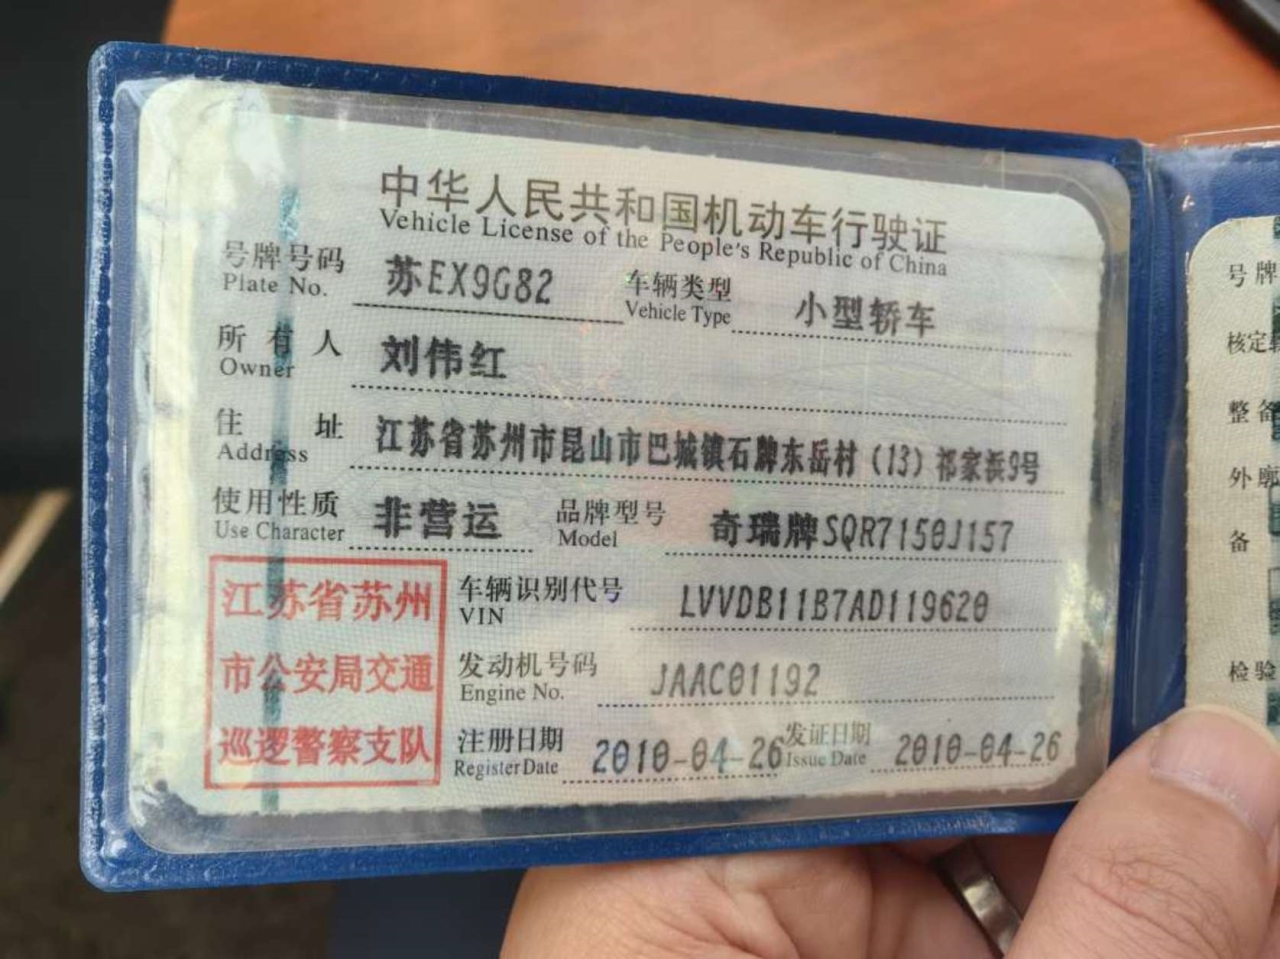 中华人民共和国机动车行驶证
Vehicle License of the People's Republic of China
号牌号码 苏EX9G82 车辆类型 小型轿车
Plate No. Vehicle Type
所有人 刘伟红
Owner
住址 江苏省苏州市昆山市巴城镇石牌东岳村（13）祁家浜9号
Address
使用性质 非营运 品牌型号 奇瑞牌SQR7150J157
Use Character Model
江苏省苏州
市公安局交通
巡逻警察支队
车辆识别代号 LVVDB11B7AD119620
VIN
发动机号码 JAAC01192
Engine No.
注册日期 2010-04-26 发证日期 2010-04-26
Register Date Issue Date
号牌
核定
整备
外廓
备
检验